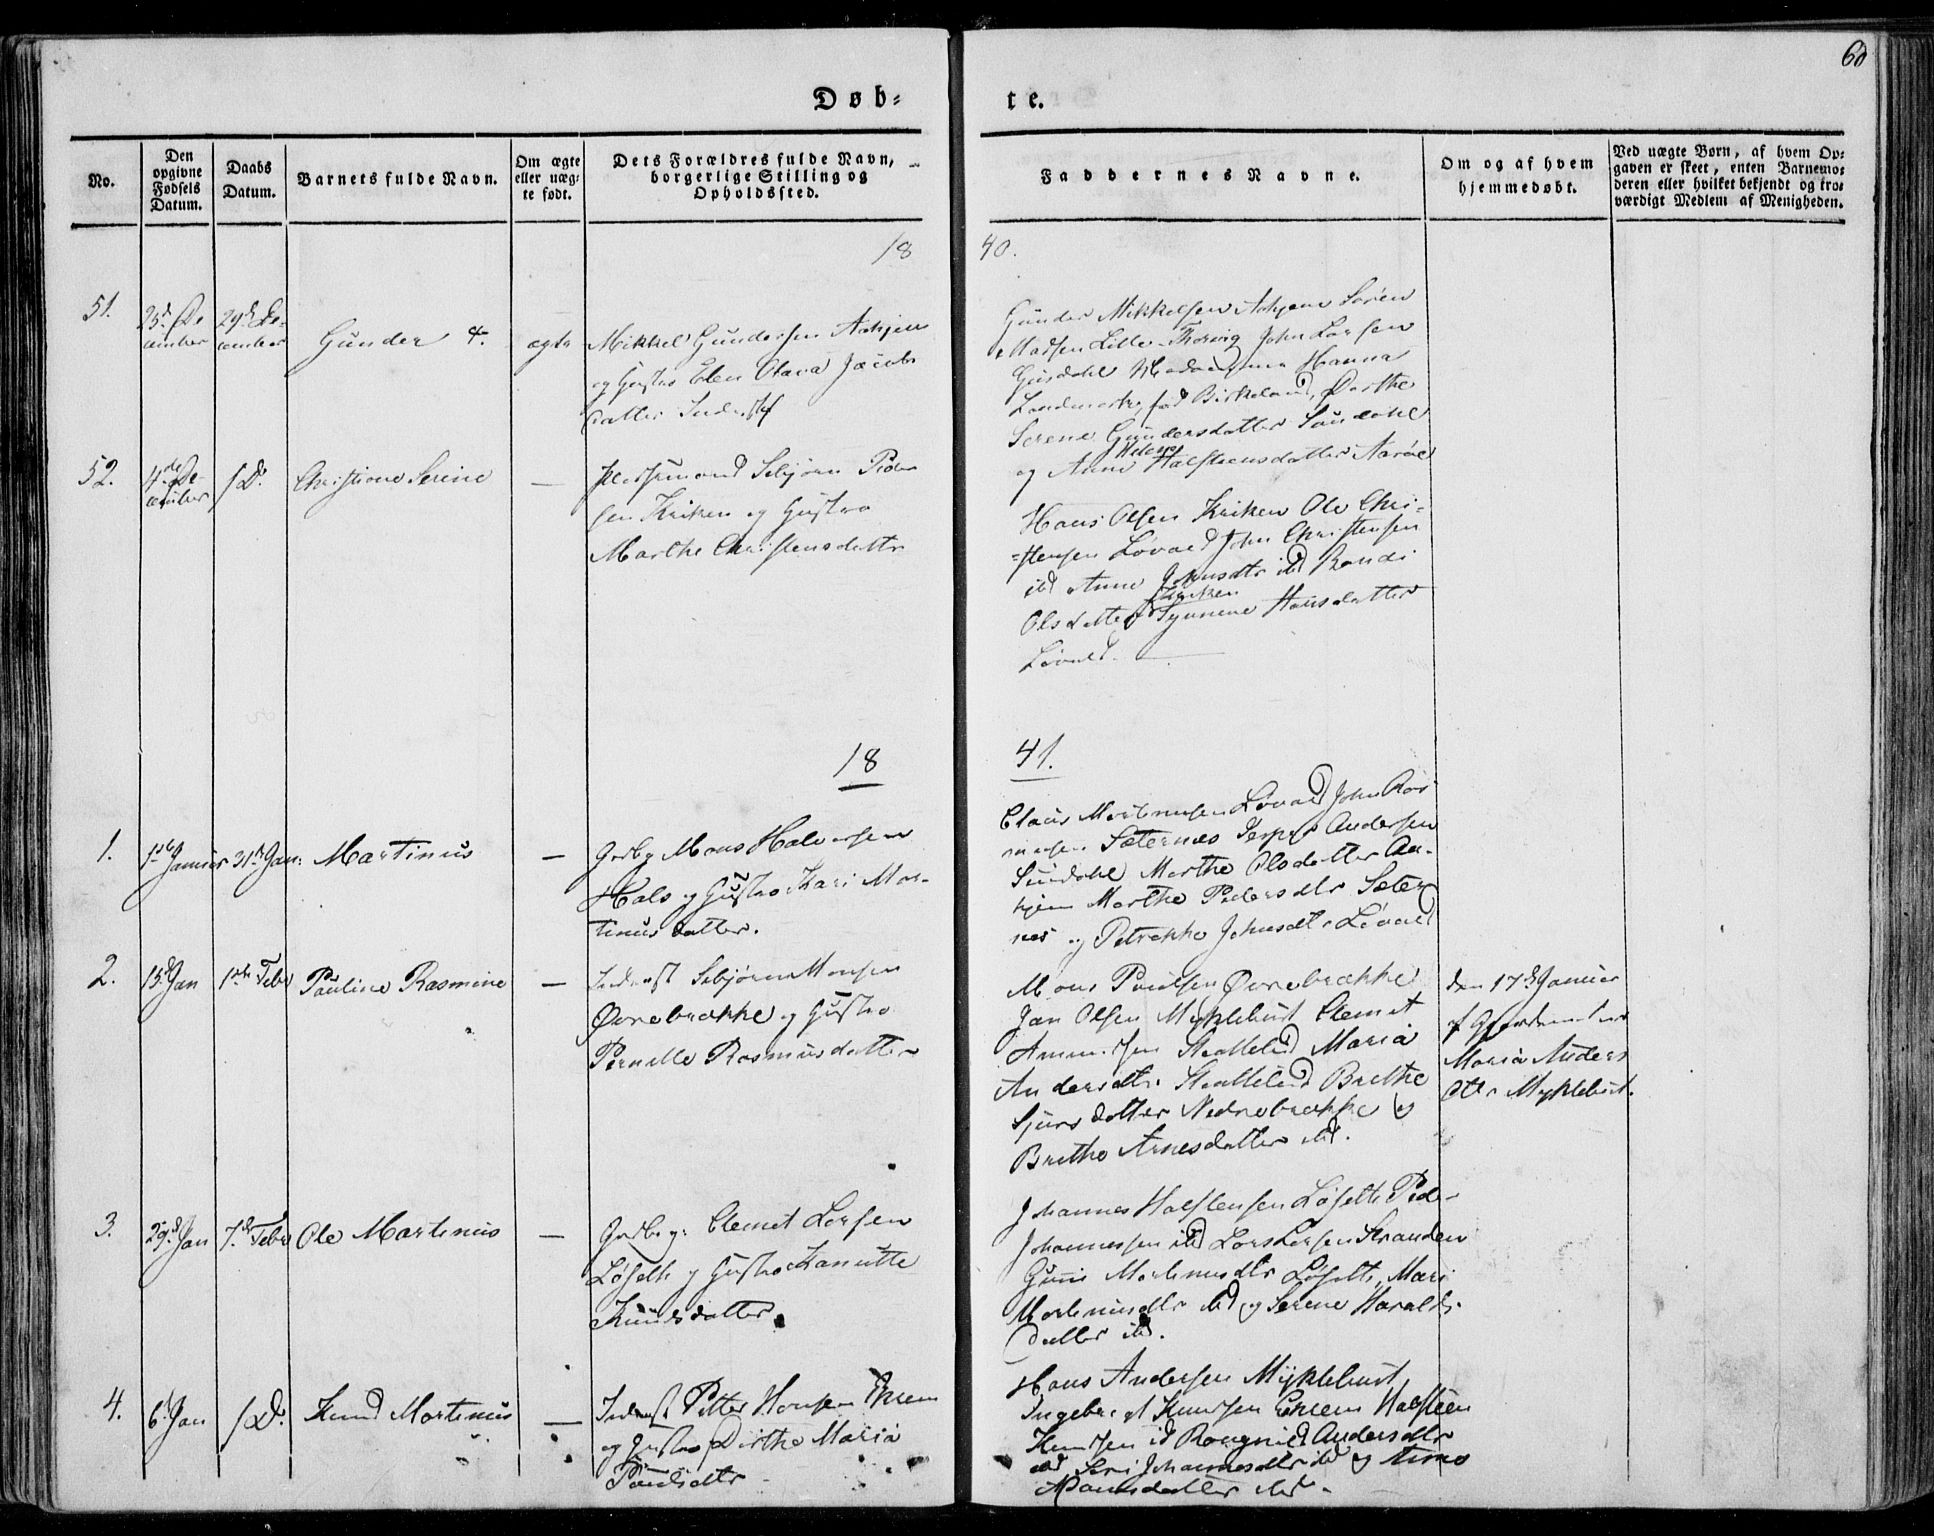 60
Døb-
te.
No.
Den
opgivne
Fødsels
Datum.
Daabs
Datum.
Barnets fulde Navn.
Om ægte
eller uæg-
te født.
Dets Forældres fulde Navn,
borgerlige Stilling og
Opholdssted.
Faddernes Navne.
Om og af hvem
hjemmedøbt.
Ved uægte Børn, af hvem Op-
gaven er skeet, enten Barnemo-
deren eller hvilket bekjendt og tro-
værdigt Medlem af Menigheden.
18
40.
51.
25d De
cember
29d De-
cember
Gunder 4.
ægte
Mikkel Gundersen
og Hustro Elen Olava Jacobs
datter Inderst
Gunder Mikkelsen Søren
Madsen Lille- John Larsen
Hanna
fød Birkeland, Dorthe
Serene Gundersdatter
og Anne Helene Halsteensdatter Aarøe
52.
4de De-
cember
/D.
Christiane Serine
—
Sebjørn Peder
sen Kriken og Hustro
Marthe Christensdatter
Hans Olsen Kriken Ole Chri-
stensen Løvold John Christensen
ibd Anne Johnsdtr ibd Randi
Olsdatter Kriken Synneve Hansdatter
Løvold.
18
41.
1.
1ste Januar
31te Jan:
Martinus
—
Grdbg Mons Halvorsen
Hals og Hustro Kari Mar-
tinusdatter.
Claus Martinusen Løvold John Ras
musen Sæternes Jesper Andersen
Marthe Olsdatter
Marthe Pedersdtr Sæter
nes og Petrikke Johnsdtr Løvold
2.
15d Jan
1ste Febr
Pauline Rasmine
—
Inderst Sebjørn Monsen
Øvrebrække og Hustro
Pernille Rasmusdatter
Mons Poulsen Øvrebrække
Jan Olsen Myklebust Clemet
Maria
Andersdtr Brethe
Sjursdatter Nedrebrække og
Brethe Arnesdatter ibd.
den 17d Januar
af
Maria Anders
dtr Myklebust.
3.
29d Jan
7d Febr
Ole Martinus
—
Grdbg: Clemet Larsen
Løseth og Hustro Kanutte
Knudsdatter.
Johannes Halstensen Løseth Ped-
Johannessen ibd Lars Larsen Stranden
Guni Martinusdtr Løseth, Mari
Martinusdtr ibd og Serene Haralds-
datter ibd.
4.
6d Jan
/D.
Knud Martinus
—
Inderst Petter Hansen
og Hustro Dorthe Maria
Poulsdtr
Hans Andersen Myklebust
Ingebrigt Knudsen Halsteen
Knudsen ibd Rangnild Andersdtr
ibd Johannesdtr ibd og
ibd.